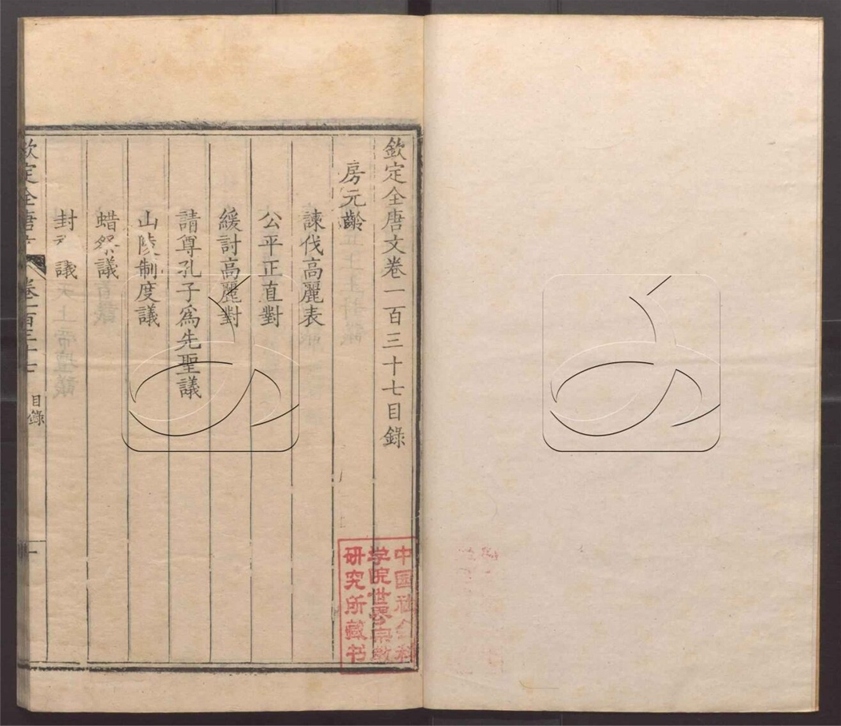 欽定全唐文卷一百三十七目錄
房元齡
諫伐高麗表
公平正直對
緩討高麗對
請尊孔子為先聖議
山陵制度議
蜡祭議
封 議
欽定全唐文
卷一百三十七
目錄
一
中国社会科
学院世界宗教
研究所藏书